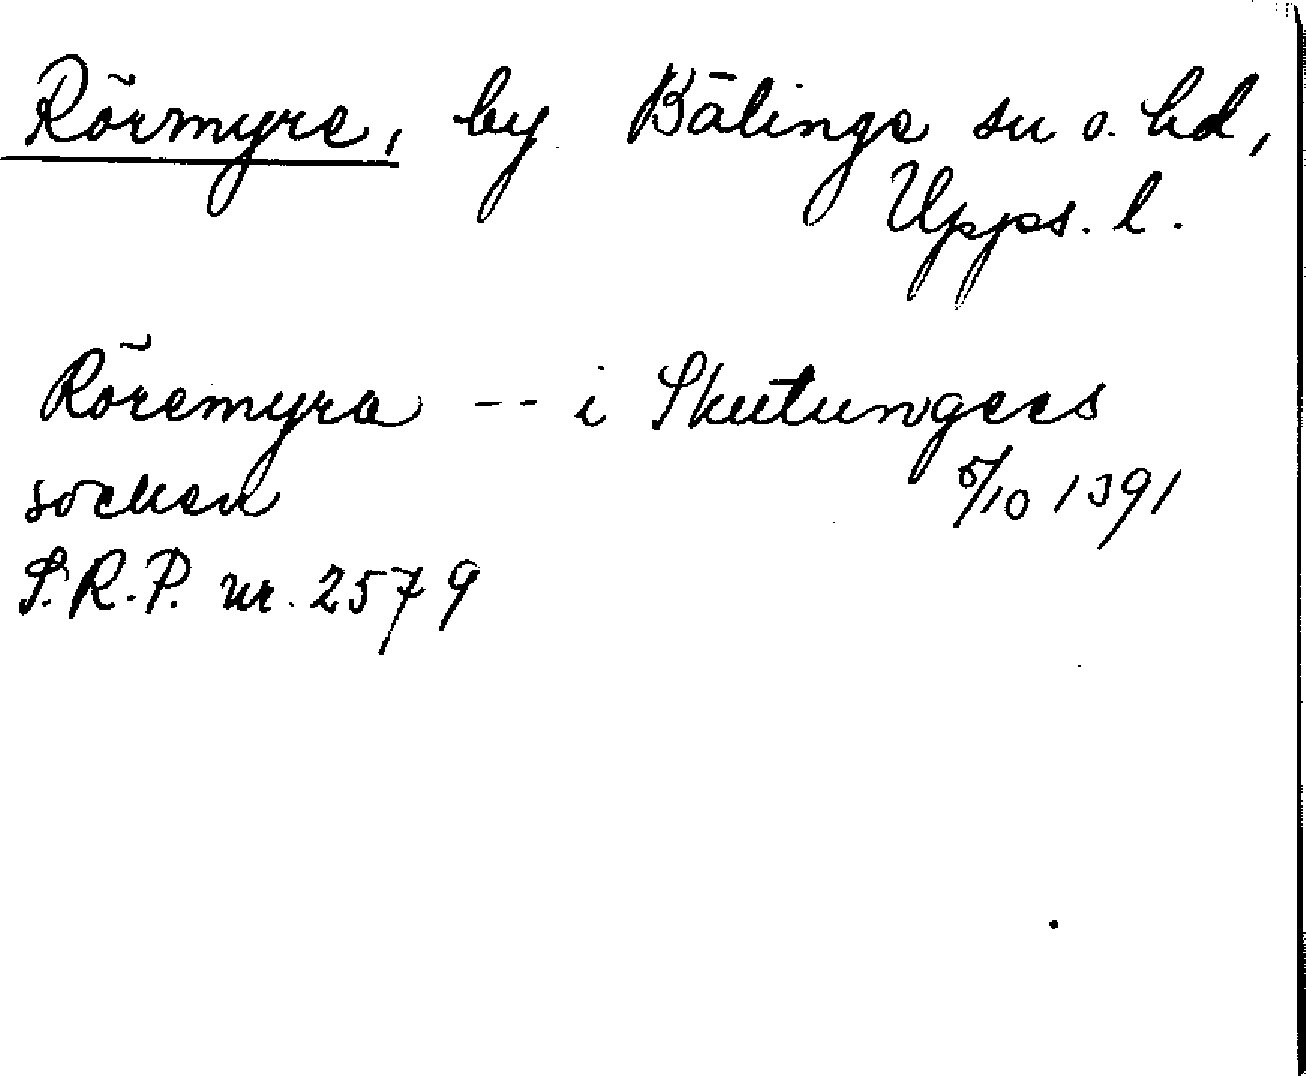 Rörmyre, by Bälinge sn o. hd,
Upps. l.
Röremyra -- i Skutungees
socken 5/10 1391
S.R.P. nr. 2579